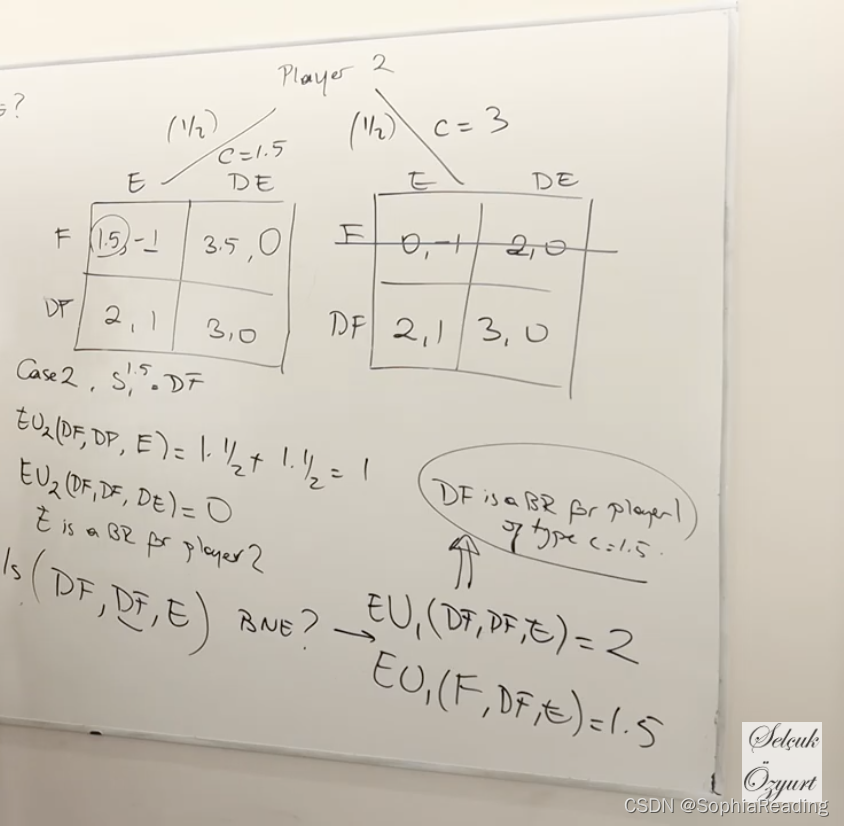 s?
Player 2
(1/2) c=1.5
(1/2) c=3
E DE
F 1.5,-1 3.5,0
DF 2,1 3,0
E DE
F 0,-1 2,0
DF 2,1 3,0
Case 2, S₁¹·⁵=DF
EU₂(DF,DF,E)=1.1/2+1.1/2=1
EU₂(DF,DF,DE)=0
E is a BR for player 2
Is (DF,DF,E) BNE? → EU₁(DF,DF,E)=2
EU₁(F,DF,E)=1.5
DF is a BR for player 1
of type c=1.5.
Selçuk
Özyurt
CSDN @SophiaReading